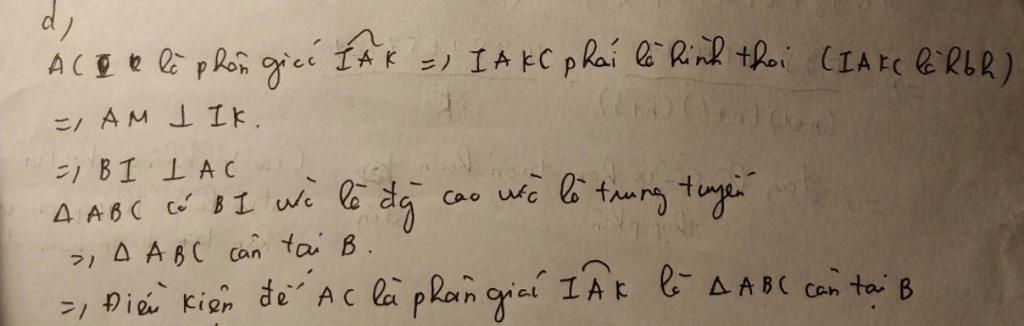 d,
AC là phân giác IAK => IAKC phải là hình thoi (IAKC là hbh)
=> AM ⊥ IK.
=> BI ⊥ AC
Δ ABC có BI vừa là đg cao vừa là trung tuyến
=> Δ ABC cân tại B.
=> Điều kiện để AC là phân giác IAK là Δ ABC cân tại B